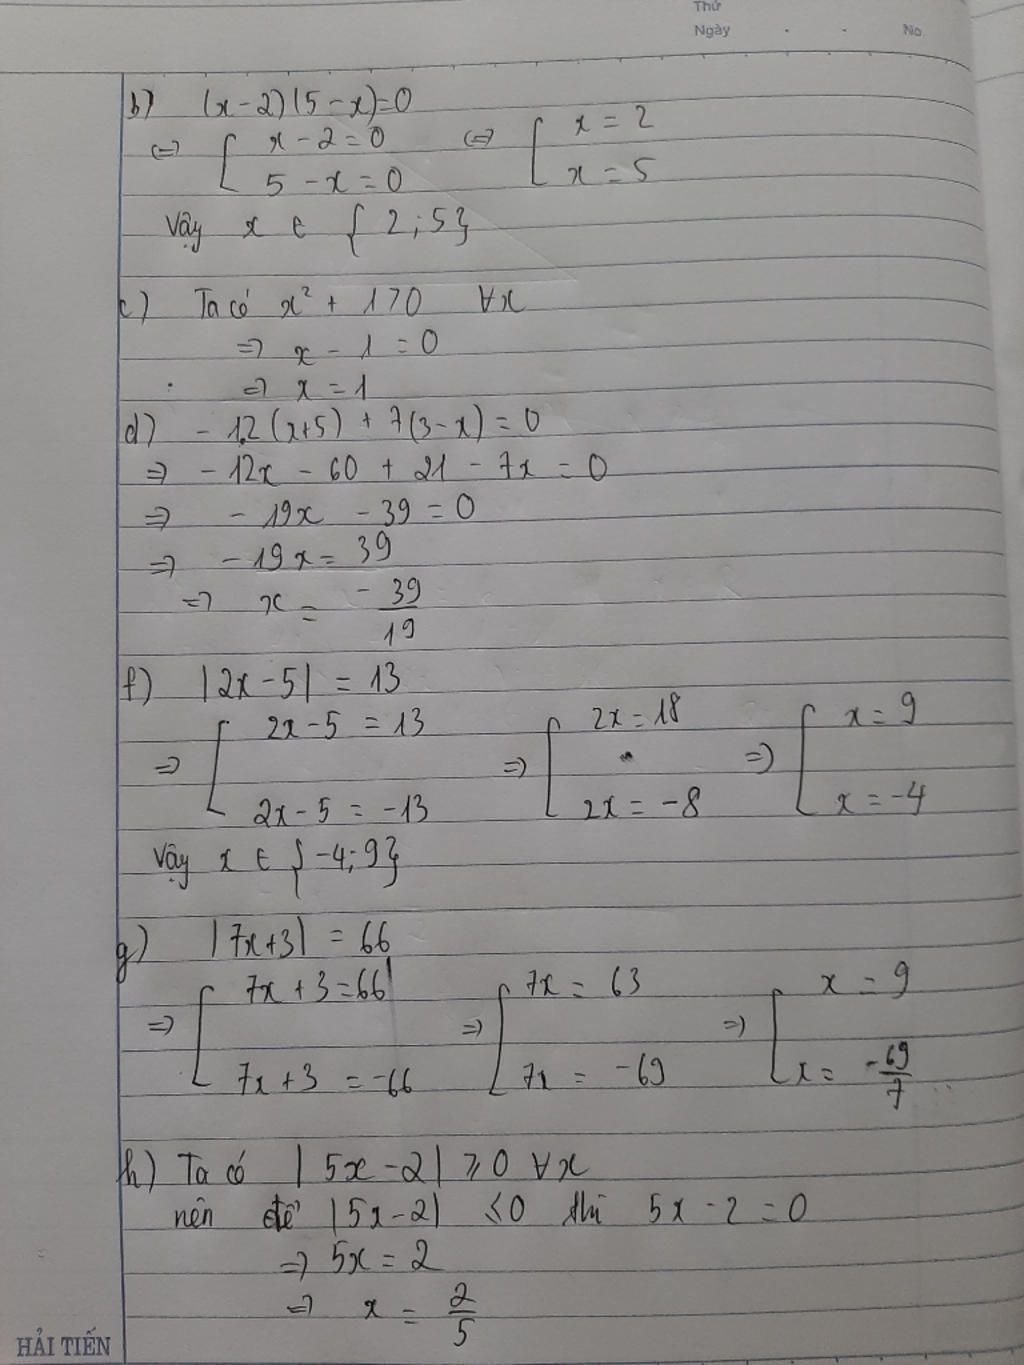 Thứ
Ngày . - No.
b) (x-2)(5-x)=0
<=> [ x-2=0 <=> [ x=2
5-x=0 x=5
Vậy x ∈ {2;5}
c) Ta có x² + 1>0 ∀x
=> x-1=0
=> x=1
d) -12(x+5) + 7(3-x)=0
=> -12x - 60 + 21 - 7x = 0
=> -19x - 39 = 0
=> -19x = 39
=> x = -39/19
f) |2x-5| = 13
=> [ 2x-5 = 13 => [ 2x=18 => [ x=9
2x-5 = -13 2x=-8 x=-4
Vậy x ∈ {-4;9}
g) |7x+3| = 66
=> [ 7x+3=66 => [ 7x=63 => [ x=9
7x+3 = -66 7x = -69 x= -69/7
h) Ta có |5x-2| ≥0 ∀x
nên để |5x-2| ≤0 thì 5x-2=0
=> 5x=2
=> x = 2/5
HẢI TIẾN